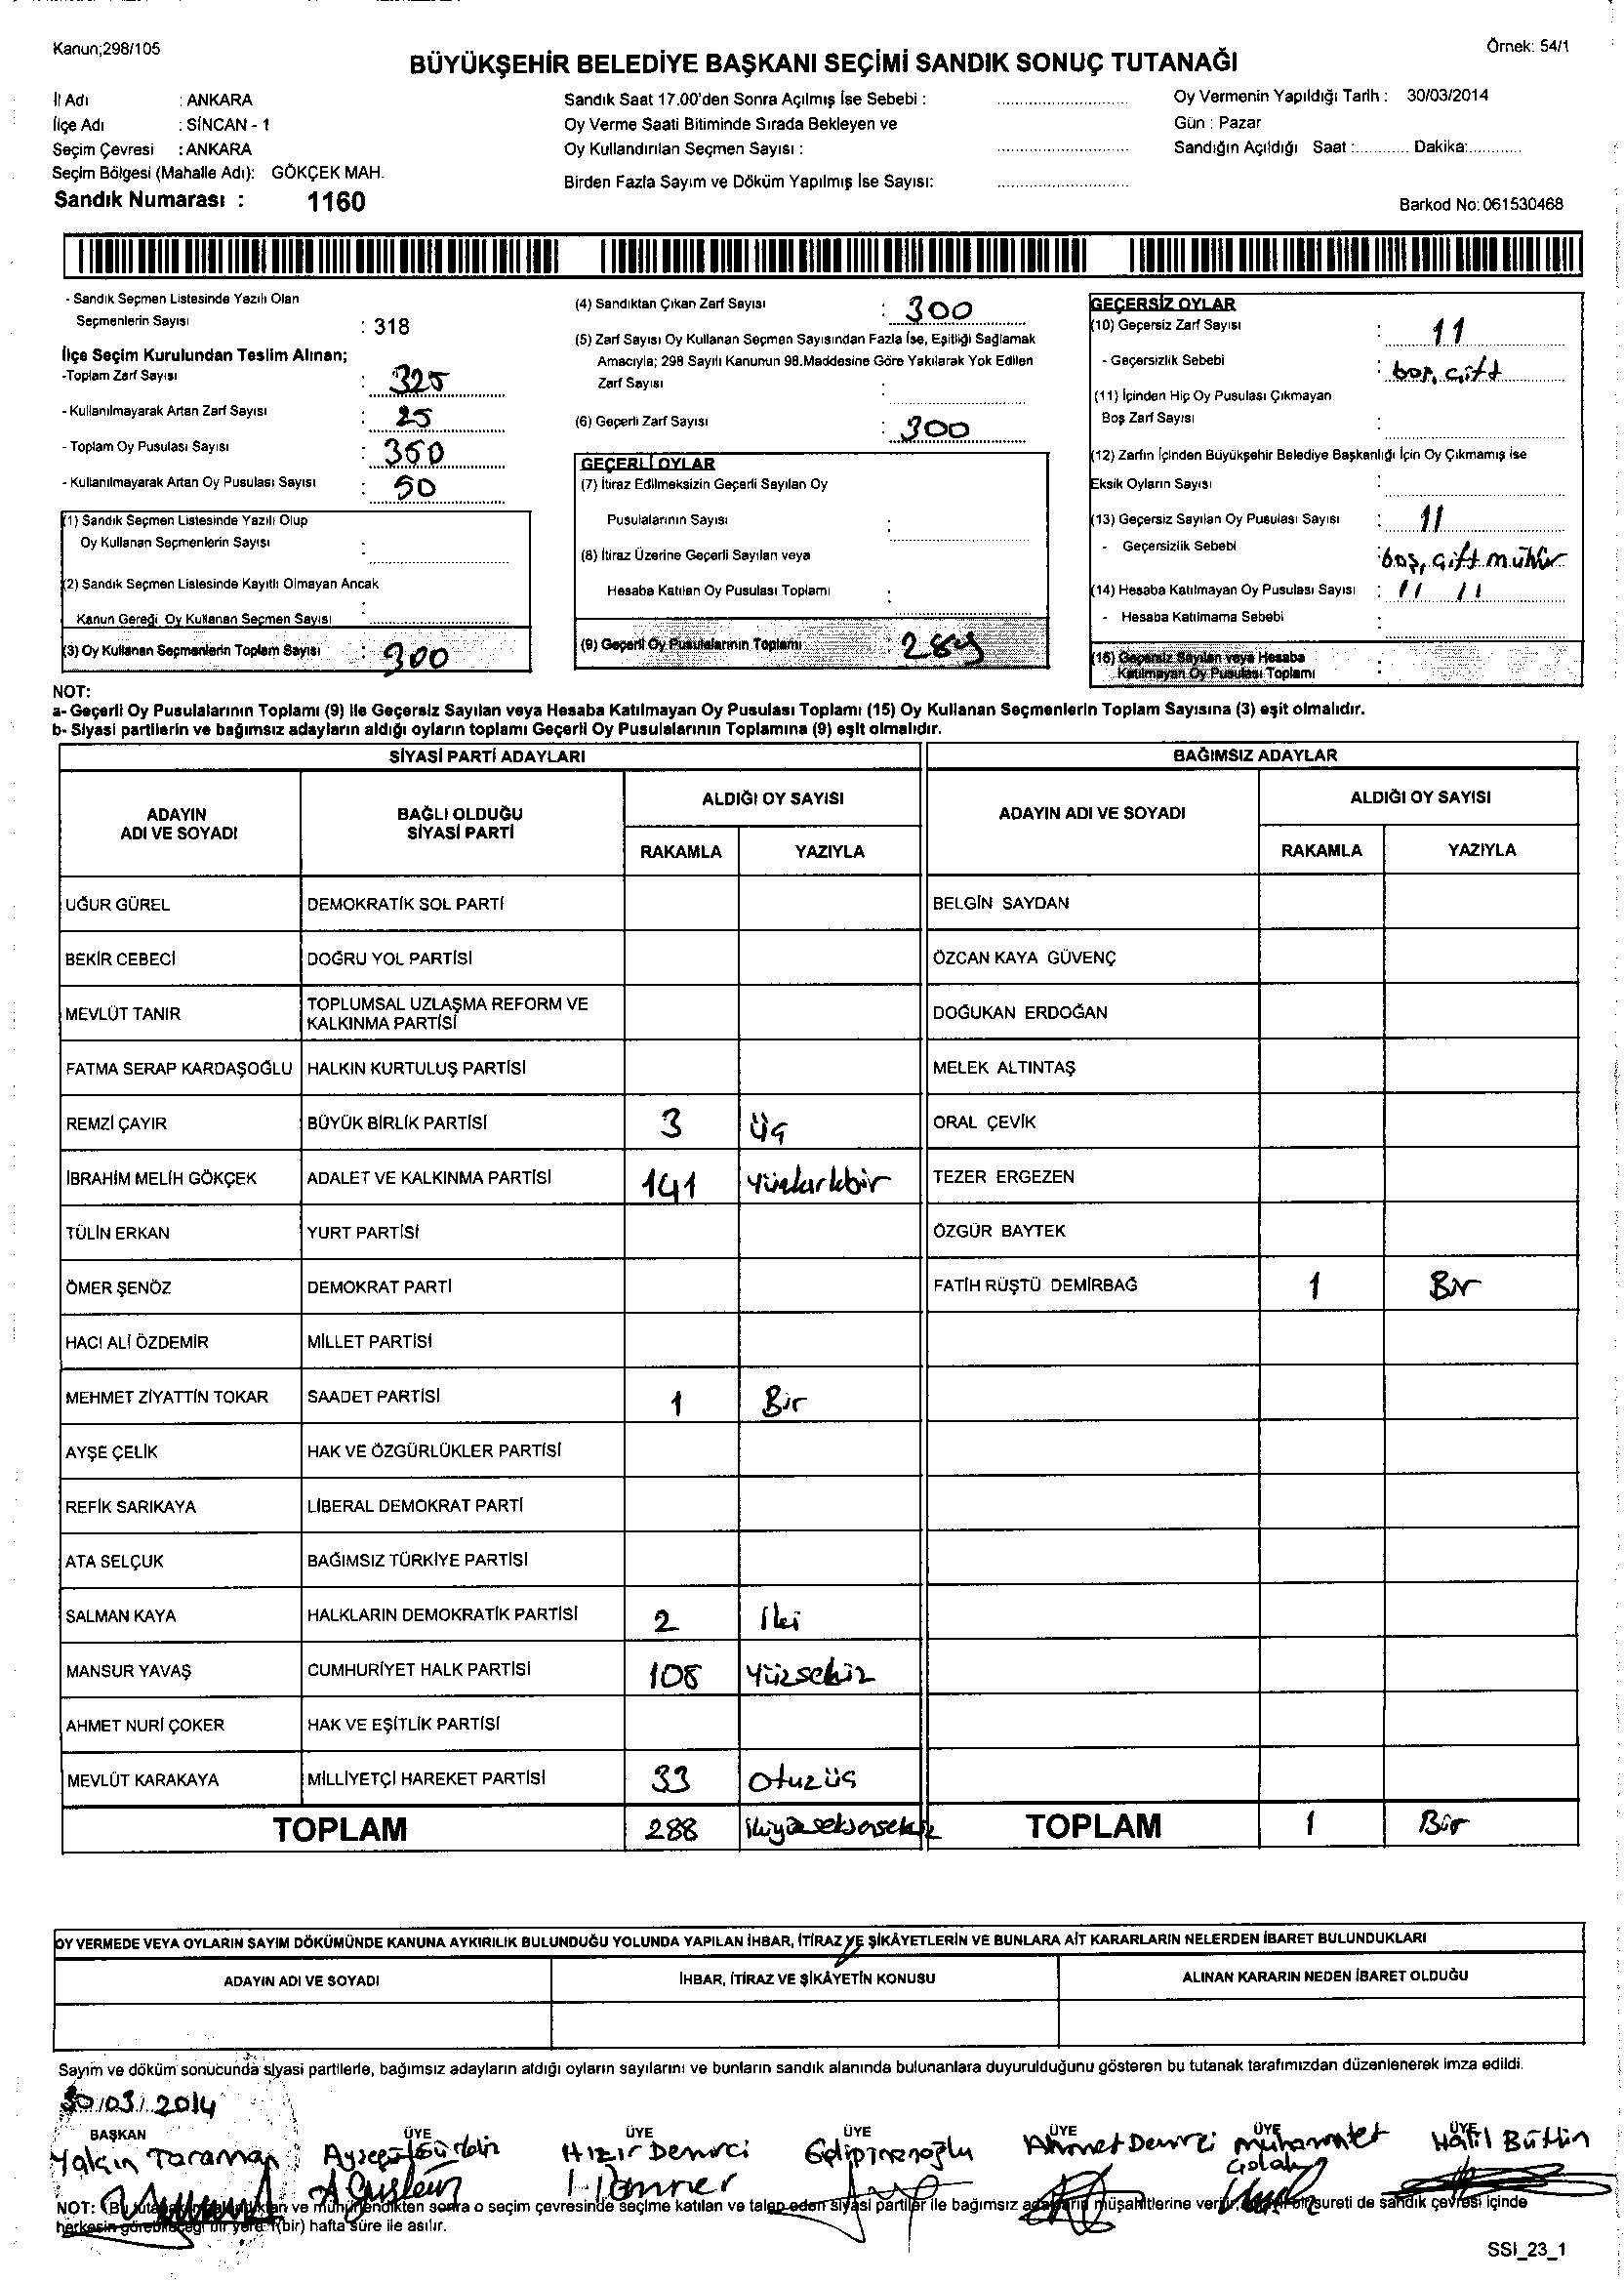 Kanun;298/105
Örnek: 54/1
BÜYÜKŞEHİR BELEDİYE BAŞKANI SEÇİMİ SANDIK SONUÇ TUTANAĞI
İl Adı : ANKARA
İlçe Adı : SİNCAN - 1
Seçim Çevresi : ANKARA
Seçim Bölgesi (Mahalle Adı): GÖKÇEK MAH.
Sandık Numarası : 1160
Sandık Saat 17.00'den Sonra Açılmış İse Sebebi :
Oy Verme Saati Bitiminde Sırada Bekleyen ve
Oy Kullandırılan Seçmen Sayısı :
Birden Fazla Sayım ve Döküm Yapılmış İse Sayısı:
Oy Vermenin Yapıldığı Tarih : 30/03/2014
Gün : Pazar
Sandığın Açıldığı Saat :............ Dakika:............
Barkod No: 061530468
- Sandık Seçmen Listesinde Yazılı Olan
Seçmenlerin Sayısı : 318
İlçe Seçim Kurulundan Teslim Alınan;
-Toplam Zarf Sayısı : 325
- Kullanılmayarak Artan Zarf Sayısı : 25
- Toplam Oy Pusulası Sayısı : 350
- Kullanılmayarak Artan Oy Pusulası Sayısı : 50
(1) Sandık Seçmen Listesinde Yazılı Olup
Oy Kullanan Seçmenlerin Sayısı :
(2) Sandık Seçmen Listesinde Kayıtlı Olmayan Ancak
Kanun Gereği Oy Kullanan Seçmen Sayısı :
(3) Oy Kullanan Seçmenlerin Toplam Sayısı : 300
(4) Sandıktan Çıkan Zarf Sayısı : 300
(5) Zarf Sayısı Oy Kullanan Seçmen Sayısından Fazla İse, Eşitliği Sağlamak
Amacıyla; 298 Sayılı Kanunun 98.Maddesine Göre Yakılarak Yok Edilen
Zarf Sayısı :
(6) Geçerli Zarf Sayısı : 300
GEÇERLİ OYLAR
(7) İtiraz Edilmeksizin Geçerli Sayılan Oy
Pusulalarının Sayısı :
(8) İtiraz Üzerine Geçerli Sayılan veya
Hesaba Katılan Oy Pusulası Toplamı :
(9) Geçerli Oy Pusulalarının Toplamı : 289
GEÇERSİZ OYLAR
(10) Geçersiz Zarf Sayısı : 11
- Geçersizlik Sebebi : boş, çift
(11) İçinden Hiç Oy Pusulası Çıkmayan
Boş Zarf Sayısı :
(12) Zarfın İçinden Büyükşehir Belediye Başkanlığı İçin Oy Çıkmamış İse
Eksik Oyların Sayısı :
(13) Geçersiz Sayılan Oy Pusulası Sayısı : 11
- Geçersizlik Sebebi : boş, çift mühür
(14) Hesaba Katılmayan Oy Pusulası Sayısı : 11 11
- Hesaba Katılmama Sebebi :
(15) Geçersiz Sayılan veya Hesaba
Katılmayan Oy Pusulası Toplamı :
NOT:
a- Geçerli Oy Pusulalarının Toplamı (9) ile Geçersiz Sayılan veya Hesaba Katılmayan Oy Pusulası Toplamı (15) Oy Kullanan Seçmenlerin Toplam Sayısına (3) eşit olmalıdır.
b- Siyasi partilerin ve bağımsız adayların aldığı oyların toplamı Geçerli Oy Pusulalarının Toplamına (9) eşit olmalıdır.
SİYASİ PARTİ ADAYLARI BAĞIMSIZ ADAYLAR
ADAYIN ADI VE SOYADI BAĞLI OLDUĞU SİYASİ PARTİ ALDIĞI OY SAYISI ADAYIN ADI VE SOYADI ALDIĞI OY SAYISI
RAKAMLA YAZIYLA RAKAMLA YAZIYLA
UĞUR GÜREL DEMOKRATİK SOL PARTİ BELGİN SAYDAN
BEKİR CEBECİ DOĞRU YOL PARTİSİ ÖZCAN KAYA GÜVENÇ
MEVLÜT TANIR TOPLUMSAL UZLAŞMA REFORM VE KALKINMA PARTİSİ DOĞUKAN ERDOĞAN
FATMA SERAP KARDAŞOĞLU HALKIN KURTULUŞ PARTİSİ MELEK ALTINTAŞ
REMZİ ÇAYIR BÜYÜK BİRLİK PARTİSİ 3 üç ORAL ÇEVİK
İBRAHİM MELİH GÖKÇEK ADALET VE KALKINMA PARTİSİ 141 yüzkırkbir TEZER ERGEZEN
TÜLİN ERKAN YURT PARTİSİ ÖZGÜR BAYTEK
ÖMER ŞENÖZ DEMOKRAT PARTİ FATİH RÜŞTÜ DEMİRBAĞ 1 Bir
HACI ALİ ÖZDEMİR MİLLET PARTİSİ
MEHMET ZİYATTİN TOKAR SAADET PARTİSİ 1 Bir
AYŞE ÇELİK HAK VE ÖZGÜRLÜKLER PARTİSİ
REFİK SARIKAYA LİBERAL DEMOKRAT PARTİ
ATA SELÇUK BAĞIMSIZ TÜRKİYE PARTİSİ
SALMAN KAYA HALKLARIN DEMOKRATİK PARTİSİ 2 İki
MANSUR YAVAŞ CUMHURİYET HALK PARTİSİ 108 yüzsekiz
AHMET NURİ ÇOKER HAK VE EŞİTLİK PARTİSİ
MEVLÜT KARAKAYA MİLLİYETÇİ HAREKET PARTİSİ 33 Otuzüç
TOPLAM 288 ikiyüzseksensekiz TOPLAM 1 Bir
OY VERMEDE VEYA OYLARIN SAYIM DÖKÜMÜNDE KANUNA AYKIRILIK BULUNDUĞU YOLUNDA YAPILAN İHBAR, İTİRAZ VE ŞİKÂYETLERİN VE BUNLARA AİT KARARLARIN NELERDEN İBARET BULUNDUKLARI
ADAYIN ADI VE SOYADI İHBAR, İTİRAZ VE ŞİKÂYETİN KONUSU ALINAN KARARIN NEDEN İBARET OLDUĞU
Sayım ve döküm sonucunda siyasi partilerle, bağımsız adayların aldığı oyların sayılarını ve bunların sandık alanında bulunanlara duyurulduğunu gösteren bu tutanak tarafımızdan düzenlenerek imza edildi.
30/03/2014
BAŞKAN ÜYE ÜYE ÜYE ÜYE ÜYE ÜYE
Yalçın Taraman Hızır Demirci Ahmet Demirci Halil Bütün
NOT: (Bu ve mühürlendikten sonra o seçim çevresinde seçime katılan ve talep eden siyasi partiler ile bağımsız adayların müşahitlerine verilir, sureti de sandık çevresi içinde
herkesin görebileceği bir yere 1(bir) hafta süre ile asılır.
SSI_23_1